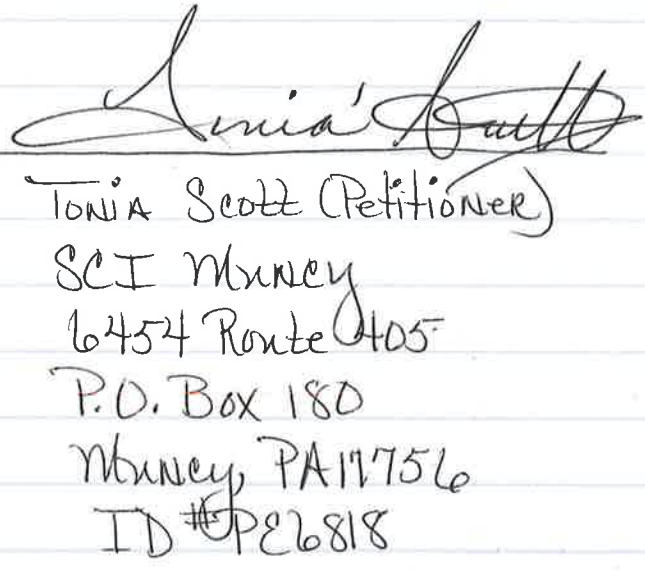 Tonia Scott
Tonia Scott (Petitioner)
SCI Muncy
6454 Route 405
P.O. Box 180
Muncy, PA 17756
ID # PE6818